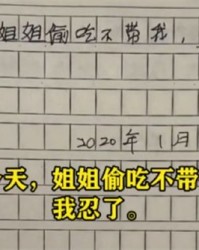 姐姐偷吃不带我，
2020年1月
天，姐姐偷吃不带
我忍了。